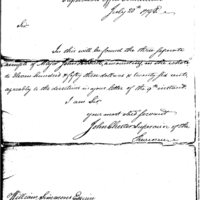 Supervisor's Office Connecticut
July 20th 1798
Sir
In this will be found the three separate
receipts of Major John amounting in the whole
to Seven hundred & fifty three dollars & twenty six cents,
agreeably to the direction in your letter of the 9th instant.
I am Sir
your most obed servant
John Chester Supervisor of the
Revenue
William Simmons Esquire